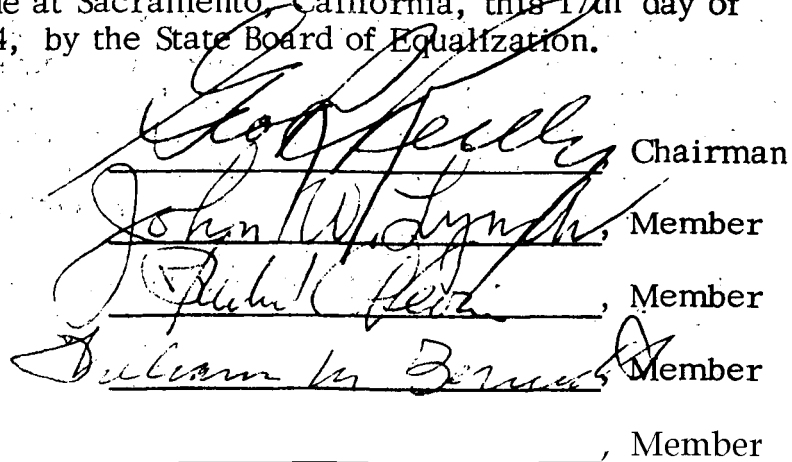 e at Sacramento, California, this 17th day of
4, by the State Board of Equalization.
Geo R Reilly, Chairman
John W. Lynch, Member
, Member
William M Bennett, Member
, Member